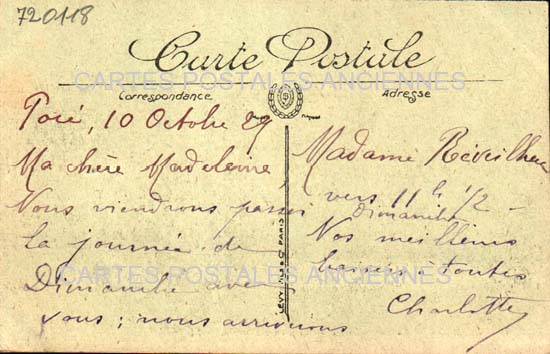 720118
Carte Postale
CARTES POSTALES ANCIENNES
Correspondance
Adresse
10 Octobre 29
Ma chère Madeleine
Nous viendrons passer
la journée de
Dimanche avec
vous ; nous arriverons
LEVY FILS & Cie PARIS
Madame Réveilhac
vers 11h 1/2
Dimanche
Nos meilleurs
baisers à toutes
Charlotte
CARTES POSTALES ANCIENNES